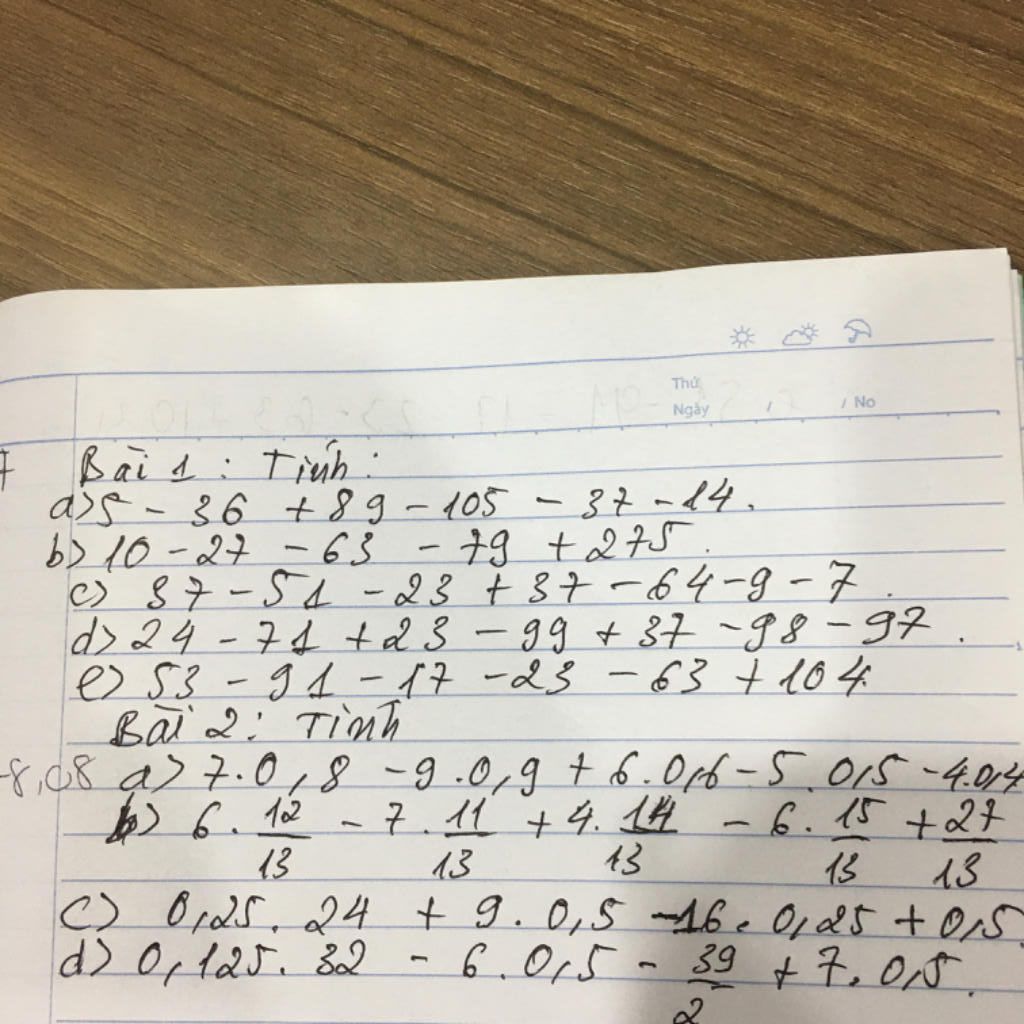 Thứ
Ngày / / No
Bài 1 : Tính :
a) 5 - 36 + 89 - 105 - 37 - 14.
b) 10 - 27 - 63 - 79 + 275.
c) 37 - 51 - 23 + 37 - 64 - 9 - 7.
d) 24 - 71 + 23 - 99 + 37 - 98 - 97.
e) 53 - 91 - 17 - 23 - 63 + 104.
Bài 2 : Tính
-8,08 a) 7.0,8 - 9.0,9 + 6.0,6 - 5.0,5 - 4.0,4
b) 6. 12/13 - 7. 11/13 + 4. 14/13 - 6. 15/13 + 27/13
c) 0,25. 24 + 9. 0,5 - 16. 0,25 + 0,5
d) 0,125. 32 - 6. 0,5 - 39/2 + 7. 0,5.